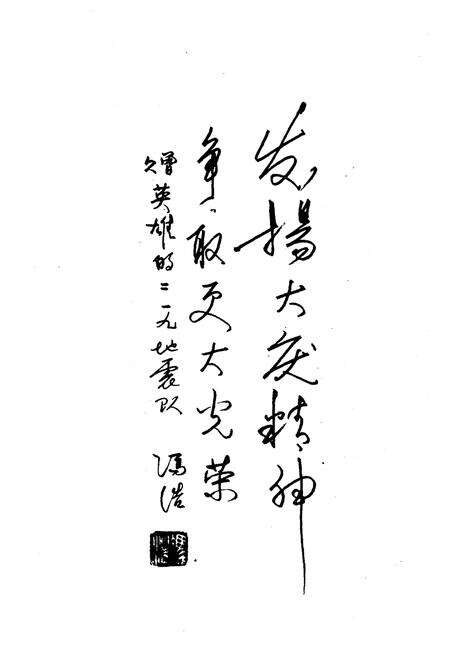 发揚大庆精神
争取更大光荣
赠英雄的二二一九地震队
冯浩